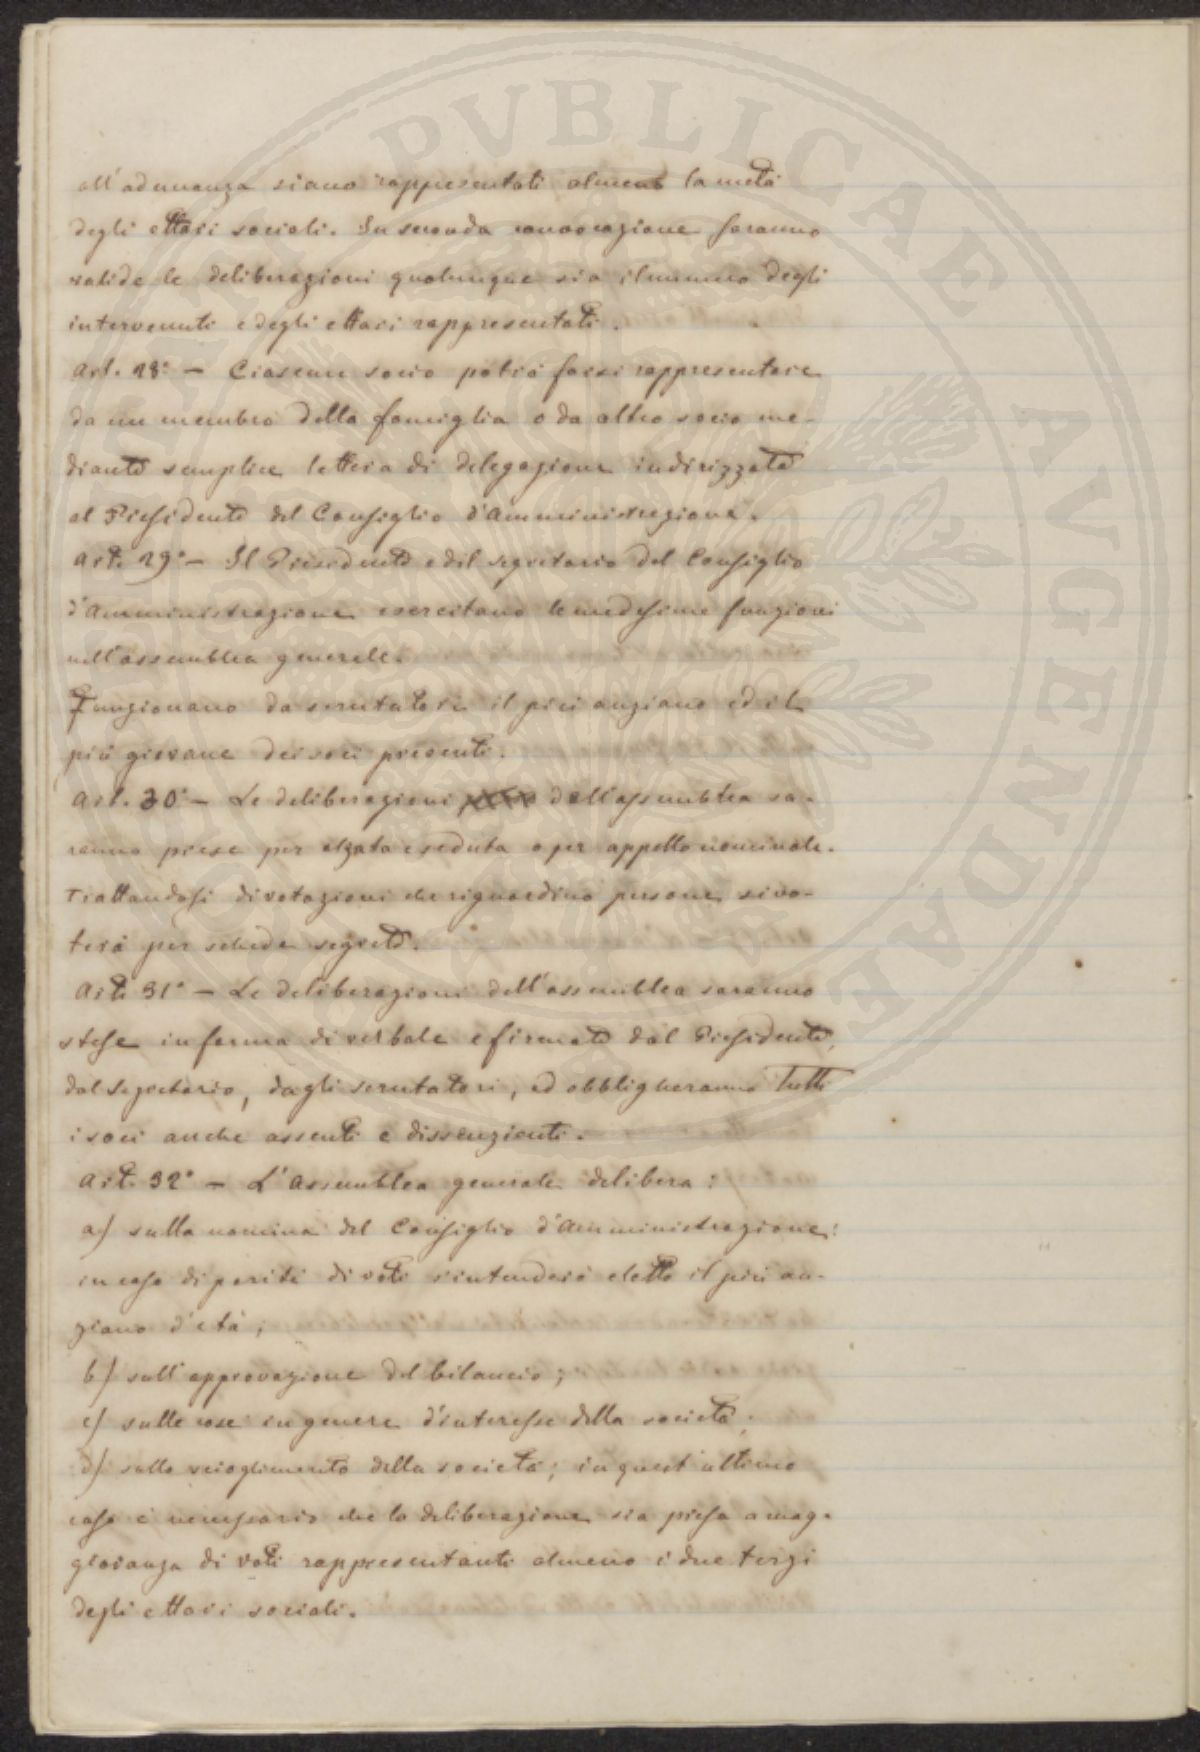 PVBLICAE AVGENDAE
all'adunanza siano rappresentati almeno la metà
degli ettari sociali. In seconda convocazione saranno
valide le deliberazioni qualunque sia il numero degli
intervenuti e degli ettari rappresentati.
Art. 28° — Ciascun socio potrà farsi rappresentare
da un membro della famiglia o da altro socio me-
diante semplice lettera di delegazione indirizzata
al Presidente del Consiglio d'Amministrazione.
Art. 29° — Il Presidente ed il segretario del Consiglio
d'Amministrazione esercitano le medesime funzioni
nell'assemblea generale.
Funzionano da scrutatori il più anziano ed il
più giovane dei soci presenti.
Art. 30° — Le deliberazioni dell'assemblea sa-
ranno prese per alzata e seduta o per appello nominale.
Trattandosi di votazioni che riguardino persone si vo-
terà per scheda segreta.
Art. 31° — Le deliberazioni dell'assemblea saranno
stese in forma di verbale e firmate dal Presidente,
dal segretario, dagli scrutatori, ed obbligheranno tutti
i soci anche assenti e dissenzienti.
Art. 32° — L'Assemblea generale delibera:
a) sulla nomina del Consiglio d'Amministrazione:
in caso di parità di voti s'intenderà eletto il più an-
ziano d'età;
b) sull'approvazione del bilancio;
c) sulle cose in genere d'interesse della società;
d) sullo scioglimento della società; in quest'ultimo
caso è necessario che la deliberazione sia presa a mag-
gioranza di voti rappresentanti almeno i due terzi
degli ettari sociali.